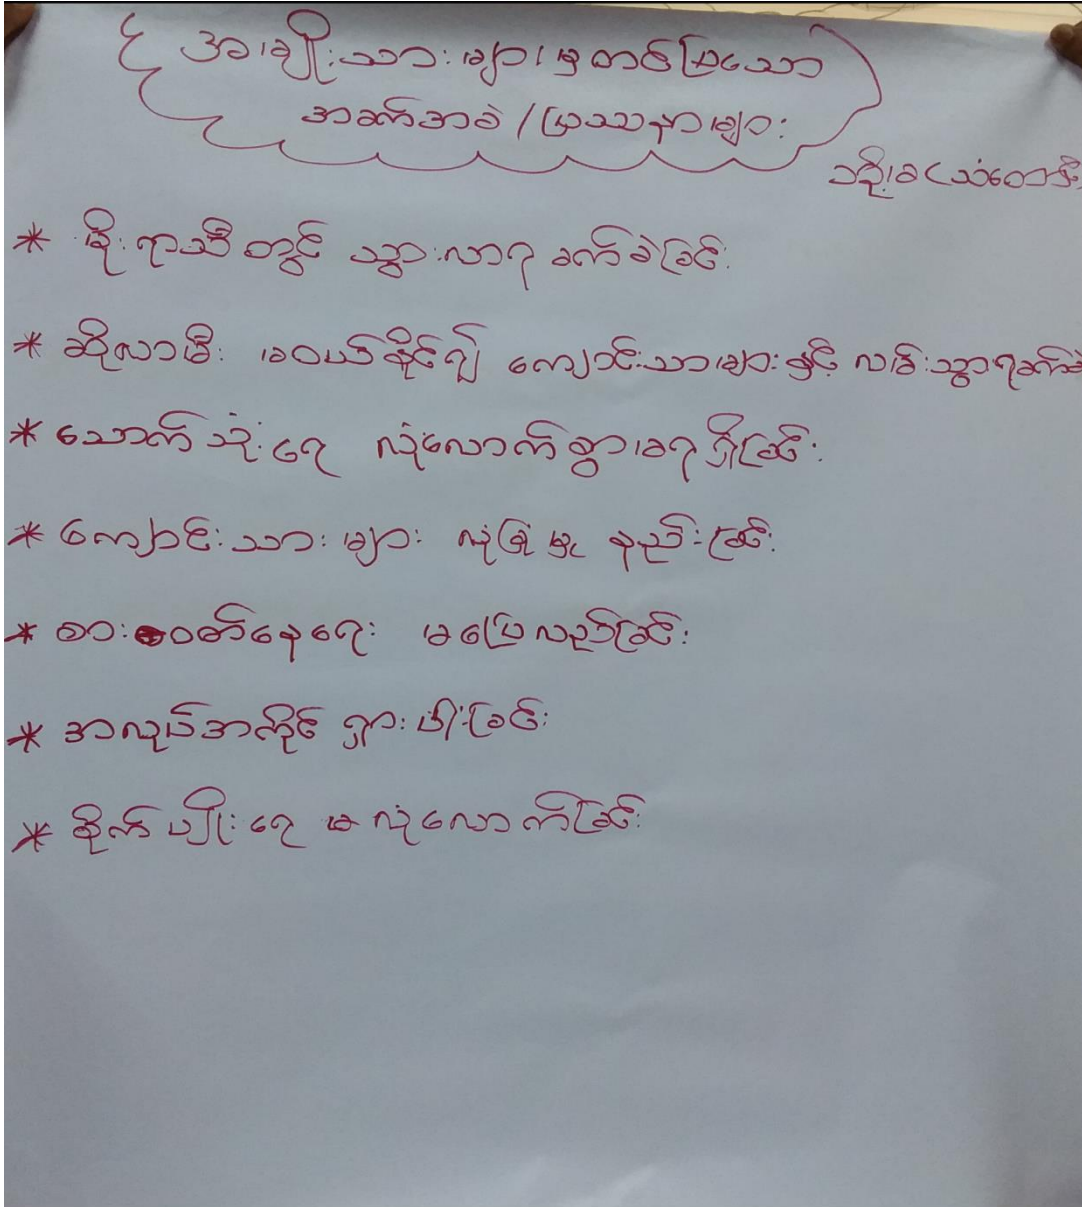 အမျိုးသားများမှတင်ပြသော
အခက်အခဲ/ပြဿနာများ
* မိုးရာသီတွင် သွားလာရခက်ခဲခြင်း
* ဆိုလာမီး မဝယ်နိုင်၍ ကျောင်းသားများနှင့် လမ်းသွားရခက်ခဲ
* သောက်သုံးရေ လုံလောက်စွာမရရှိခြင်း
* ကျောင်းသားများ လုံခြုံမှု နည်းခြင်း
* စားဝတ်နေရေး မပြေလည်ခြင်း
* အလုပ်အကိုင် ရှားပါးခြင်း
* စိုက်ပျိုးရေ မလုံလောက်ခြင်း